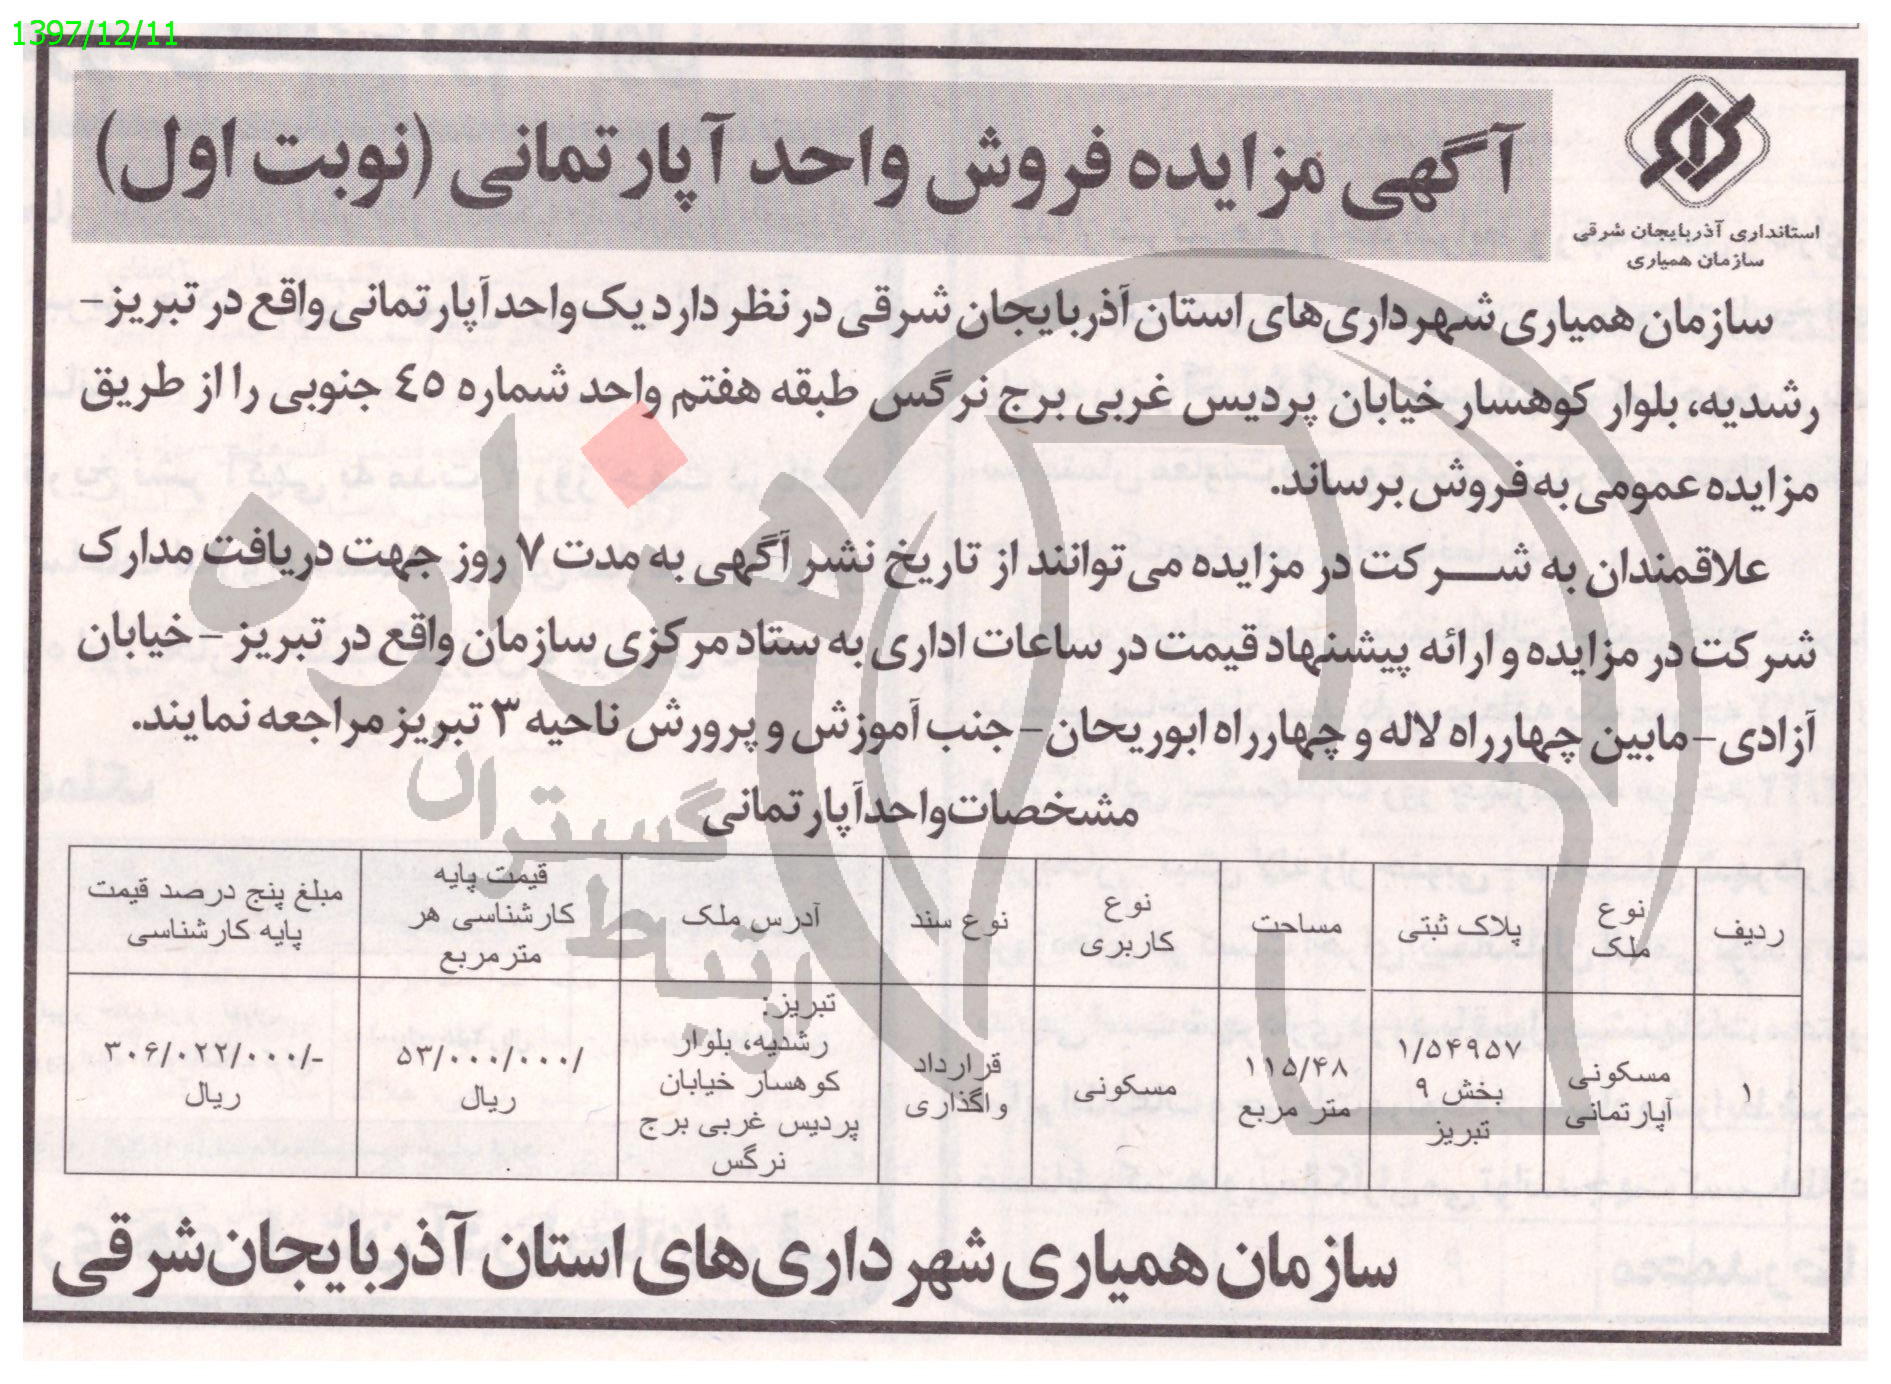 1397/12/11
استانداری آذربایجان شرقی
سازمان همیاری
آگهی مزایده فروش واحد آپارتمانی (نوبت اول)
سازمان همیاری شهرداری‌های استان آذربایجان شرقی در نظر دارد یک واحد آپارتمانی واقع در تبریز-
رشدیه، بلوار کوهسار خیابان پردیس غربی برج نرگس طبقه هفتم واحد شماره ٤٥ جنوبی را از طریق
مزایده عمومی به فروش برساند.
علاقمندان به شـــرکت در مزایده می‌توانند از تاریخ نشر آگهی به مدت ۷ روز جهت دریافت مدارک
شرکت در مزایده و ارائه پیشنهاد قیمت در ساعات اداری به ستاد مرکزی سازمان واقع در تبریز - خیابان
آزادی - مابین چهارراه لاله و چهارراه ابوریحان - جنب آموزش و پرورش ناحیه ۳ تبریز مراجعه نمایند.
مشخصات واحد آپارتمانی
ردیف
نوع
ملک
پلاک ثبتی
مساحت
نوع
کاربری
نوع سند
آدرس ملک
قیمت پایه
کارشناسی هر
مترمربع
مبلغ پنج درصد قیمت
پایه کارشناسی
۱
مسکونی
آپارتمانی
۱/۵۴۹۵۷
بخش ۹
تبریز
۱۱۵/۴۸
متر مربع
مسکونی
قرارداد
واگذاری
تبریز:
رشدیه، بلوار
کوهسار خیابان
پردیس غربی برج
نرگس
۵۳/۰۰۰/۰۰۰/
ریال
۳۰۶/۰۲۲/۰۰۰/-
ریال
سازمان همیاری شهرداری‌های استان آذربایجان‌شرقی
هزاره
ارتباط
گستران